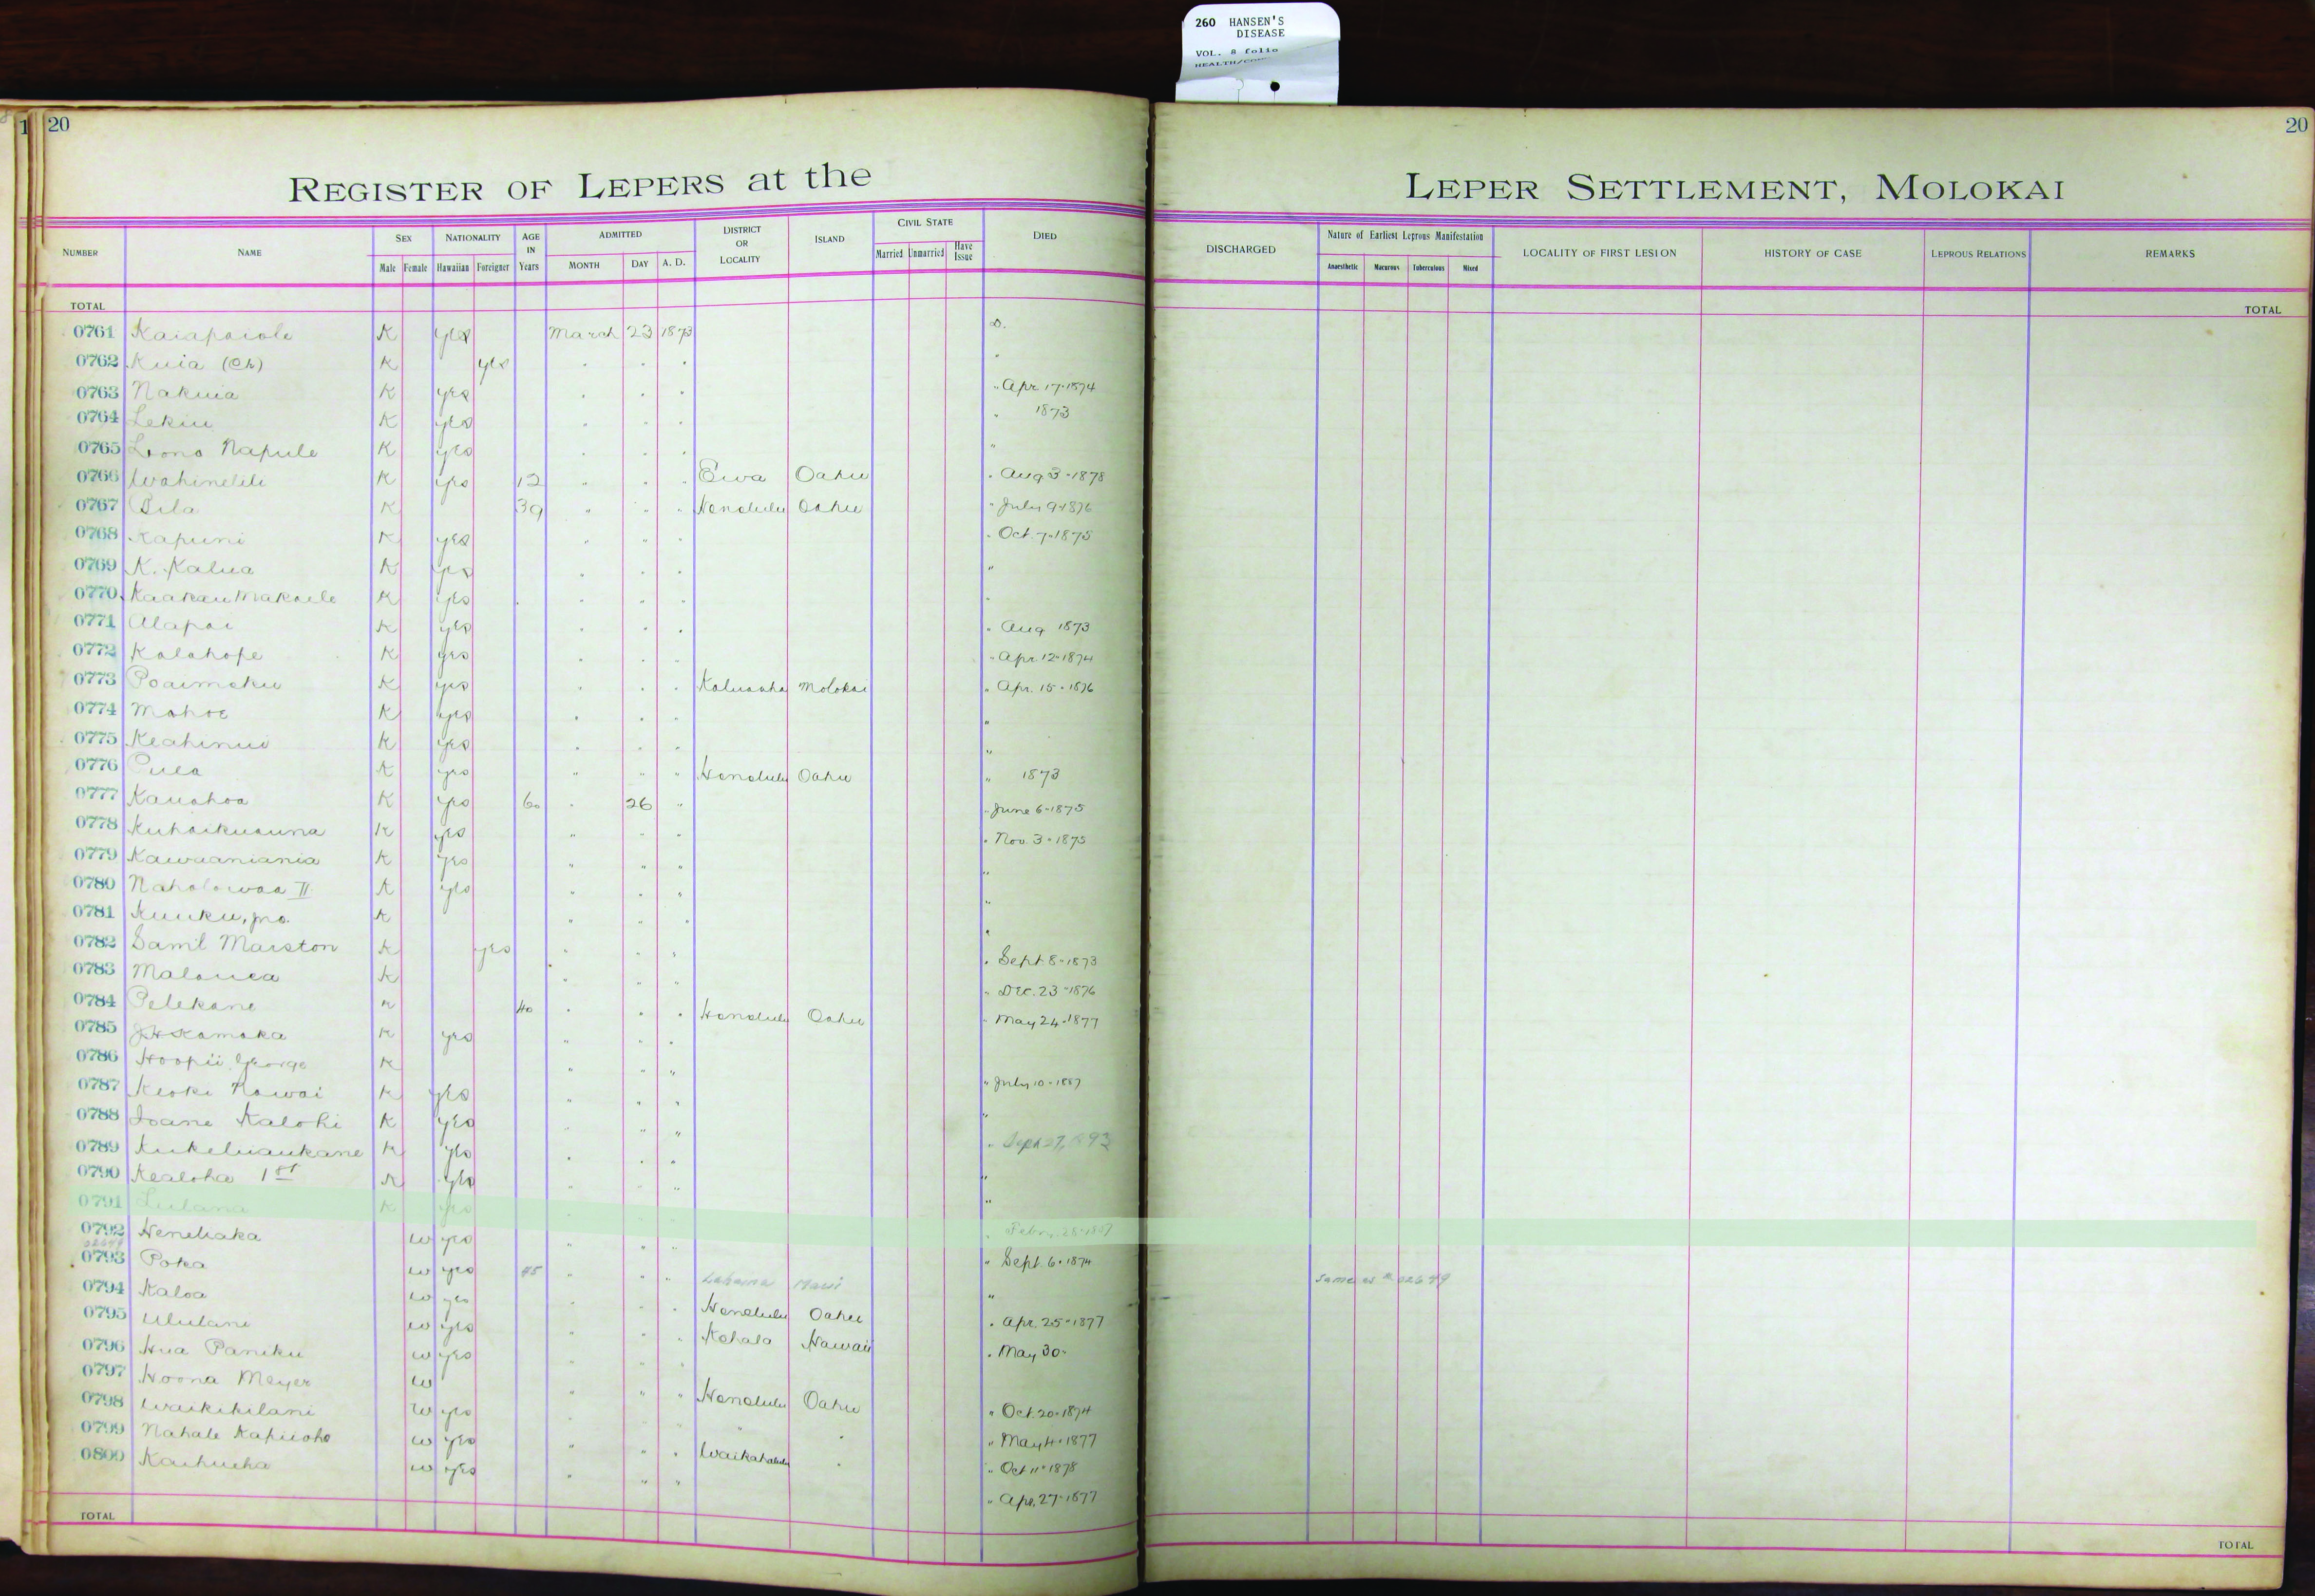 260 HANSEN'S
DISEASE
VOL. 8 folio
20
20
REGISTER OF LEPERS at the LEPER SETTLEMENT, MOLOKAI
NUMBER NAME SEX Male Female NATIONALITY Hawaiian Foreigner AGE IN Years ADMITTED MONTH DAY A. D. DISTRICT OR LOCALITY ISLAND CIVIL STATE Married Unmarried Have Issue DIED DISCHARGED Nature of Earliest Leprous Manifestation Anaesthetic Macurous Tuberculous Mixed LOCALITY OF FIRST LESION HISTORY OF CASE LEPROUS RELATIONS REMARKS
TOTAL TOTAL
0761 Kaiapaiole K yes March 23 1873 D.
0762 Kuia (Ch) K yes " " " "
0763 Nakuia K yes " " " " Apr 17-1874
0764 Lekiu K yes " " " " 1873
0765 Lono Napule K yes " " " "
0766 Wahinelili K yes 12 " " " Ewa Oahu " Aug 3-1878
0767 Pila K 39 " " " Honolulu Oahu " July 9-1876
0768 Kapuni K yes " " " " Oct. 7-1875
0769 K. Kalua K yes " " " "
0770 Kaakau Makaele K yes " " " "
0771 Alapai K yes " " " " Aug 1873
0772 Kalahope K yes " " " " Apr. 12-1874
0773 Poaimoku K yes " " " Kaluaaha Molokai " Apr. 15-1876
0774 Mahoe K yes " " " "
0775 Keahinui K yes " " " "
0776 Pula K yes " " " Honolulu Oahu " 1873
0777 Kauahoa K yes 60 " 26 " " June 6-1875
0778 Kuhaikuauna K yes " " " " Nov. 3-1875
0779 Kawaaniania K yes " " " "
0780 Naholowaa II K yes " " " "
0781 Kuuku, jno. K " " " "
0782 Saml Marston K yes " " " " Sept 8-1873
0783 Malouea K " " " " Dec. 23-1876
0784 Pelekane K 40 " " " Honolulu Oahu " May 24-1877
0785 J H Kamaka K yes " " "
0786 Hoopii George K " " " " July 10-1887
0787 Keoki Nawai K yes " " " "
0788 Ioane Kalohi K yes " " " " Sept 27,
0789 Kukeluaukane K yes " " " "
0790 Kealoha 1st K yes " " " "
0791 Lulana K yes " " " " Feby. 28-
0792 Henehaka W yes " " " " Sept. 6-1874
0793 Poka W yes 45 " " " Lahaina Maui " Same as # 02649
0794 Kaloa W yes " " " Honolulu Oahu " Apr. 25-1877
0795 Ululani W yes " " " Kohala Hawaii " May 30-
0796 Hua Paniku W yes " " "
0797 Hoona Meyer W " " " Honolulu Oahu " Oct. 20-1874
0798 Waikikilani W yes " " " " " May 4-1877
0799 Nahale Kapuoho W yes " " " Waikahalulu " " Oct 11-1878
0800 Kaihueha W yes " " " " Apr. 27-1877
TOTAL TOTAL